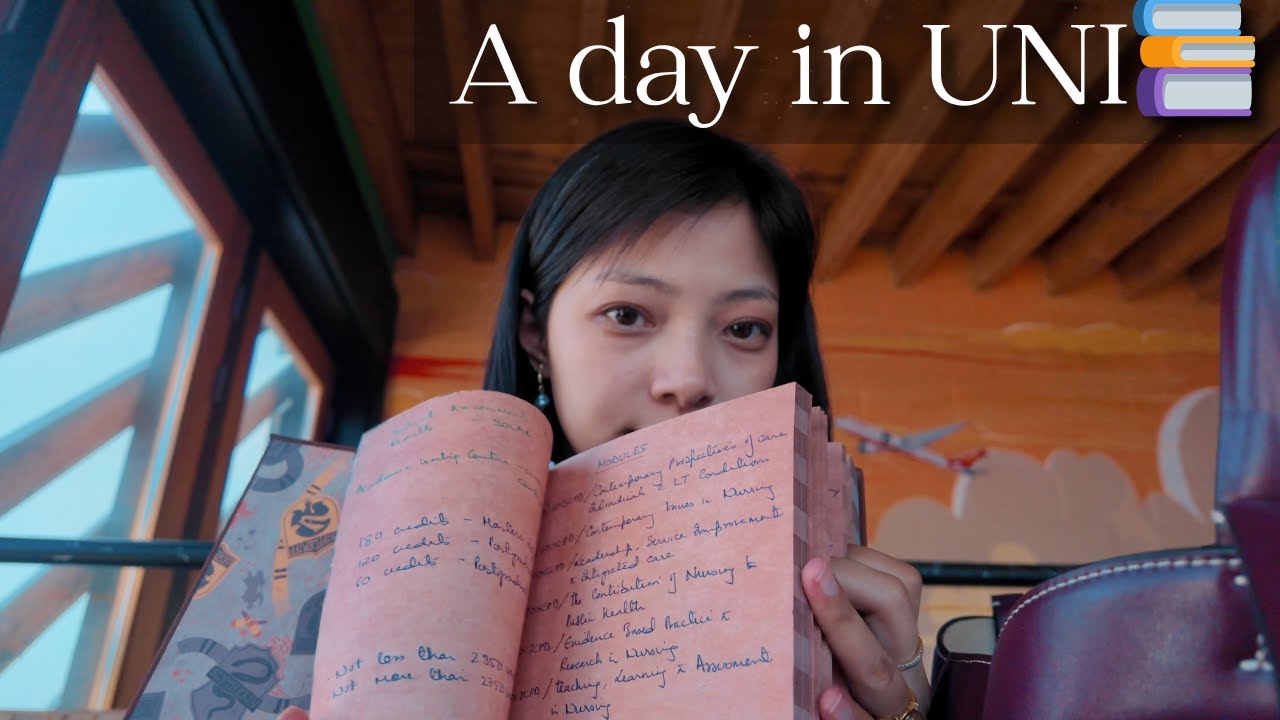 A day in UNI
Academic Writing Centre
180 credits - Masters
120 credits - Postgrad
60 credits - Postgrad
Not less than 2350
Not more than 2750
MODULES
CPD/Contemporary Perspectives of care
Individuals & LT Conditions
CPD/Contemporary Issues in Nursing
CPD/Leadership, Service Improvement
& Integrated care
CPD/The Contribution of Nursing to
Public Health
CPD/Evidence Based Practice &
Research in Nursing
CPD/Teaching, Learning & Assessment
in Nursing